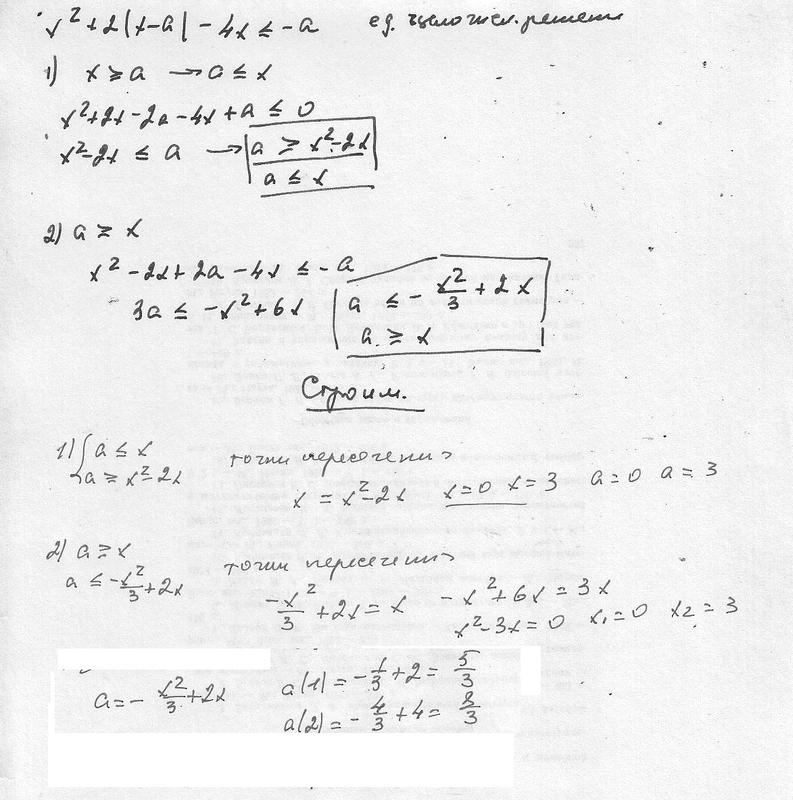 x² + 2|x-a| - 4x ≤ -a ед. целочисл. решени
1) x ≥ a → a ≤ x
x² + 2x - 2a - 4x + a ≤ 0
x² - 2x ≤ a → a ≥ x² - 2x
a ≤ x
2) a ≥ x
x² - 2x + 2a - 4x ≤ -a
3a ≤ -x² + 6x a ≤ -x²/3 + 2x
a ≥ x
Строим.
1) { a ≤ x точки пересечения
a ≥ x² - 2x x = x² - 2x x=0 x=3 a=0 a=3
2) a ≥ x точки пересечения
a ≤ -x²/3 + 2x -x²/3 + 2x = x -x² + 6x = 3x
x² - 3x = 0 x₁=0 x₂=3
a = -x²/3 + 2x a(1) = -1/3 + 2 = 5/3
a(2) = -4/3 + 4 = 8/3